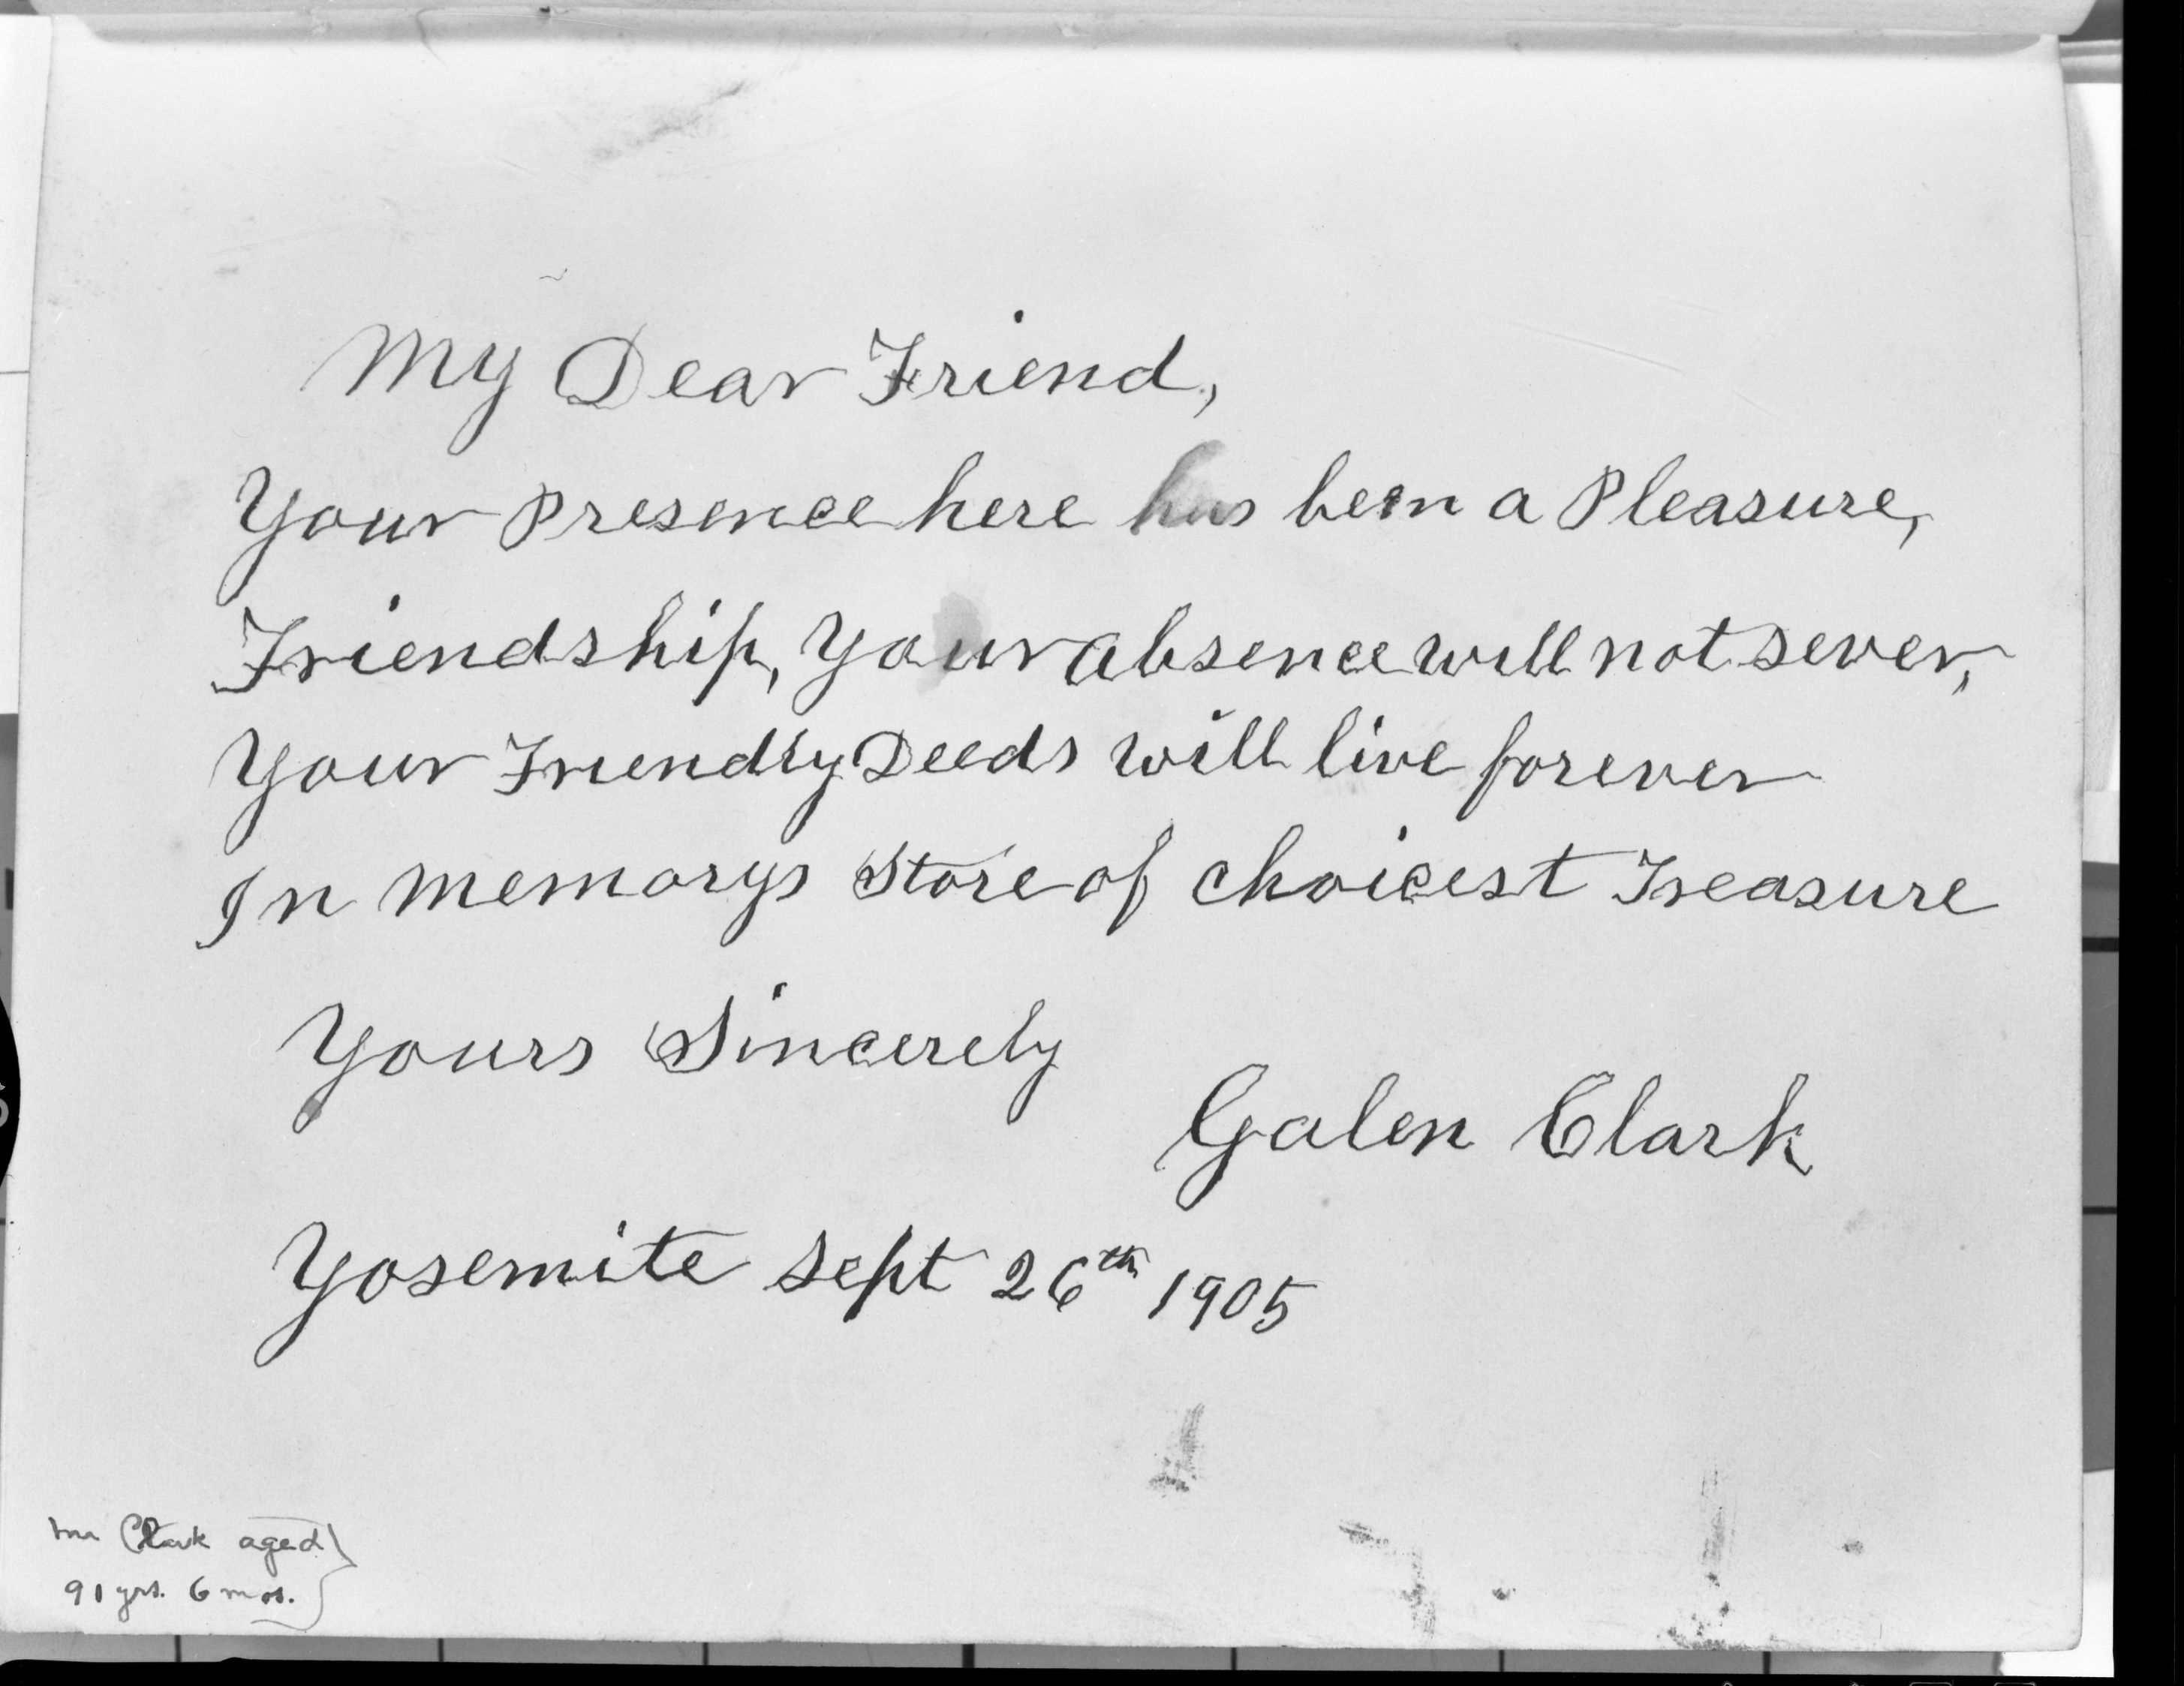 My Dear Friend,
Your Presence here has been a Pleasure,
Friendship, Your Absence will not sever,
Your Friendly Deeds will live forever
In memorys Store of choicest Treasure
Yours Sincerely
Galen Clark
Yosemite Sept 26th 1905
Mr Clark aged
91 yrs. 6 mos.